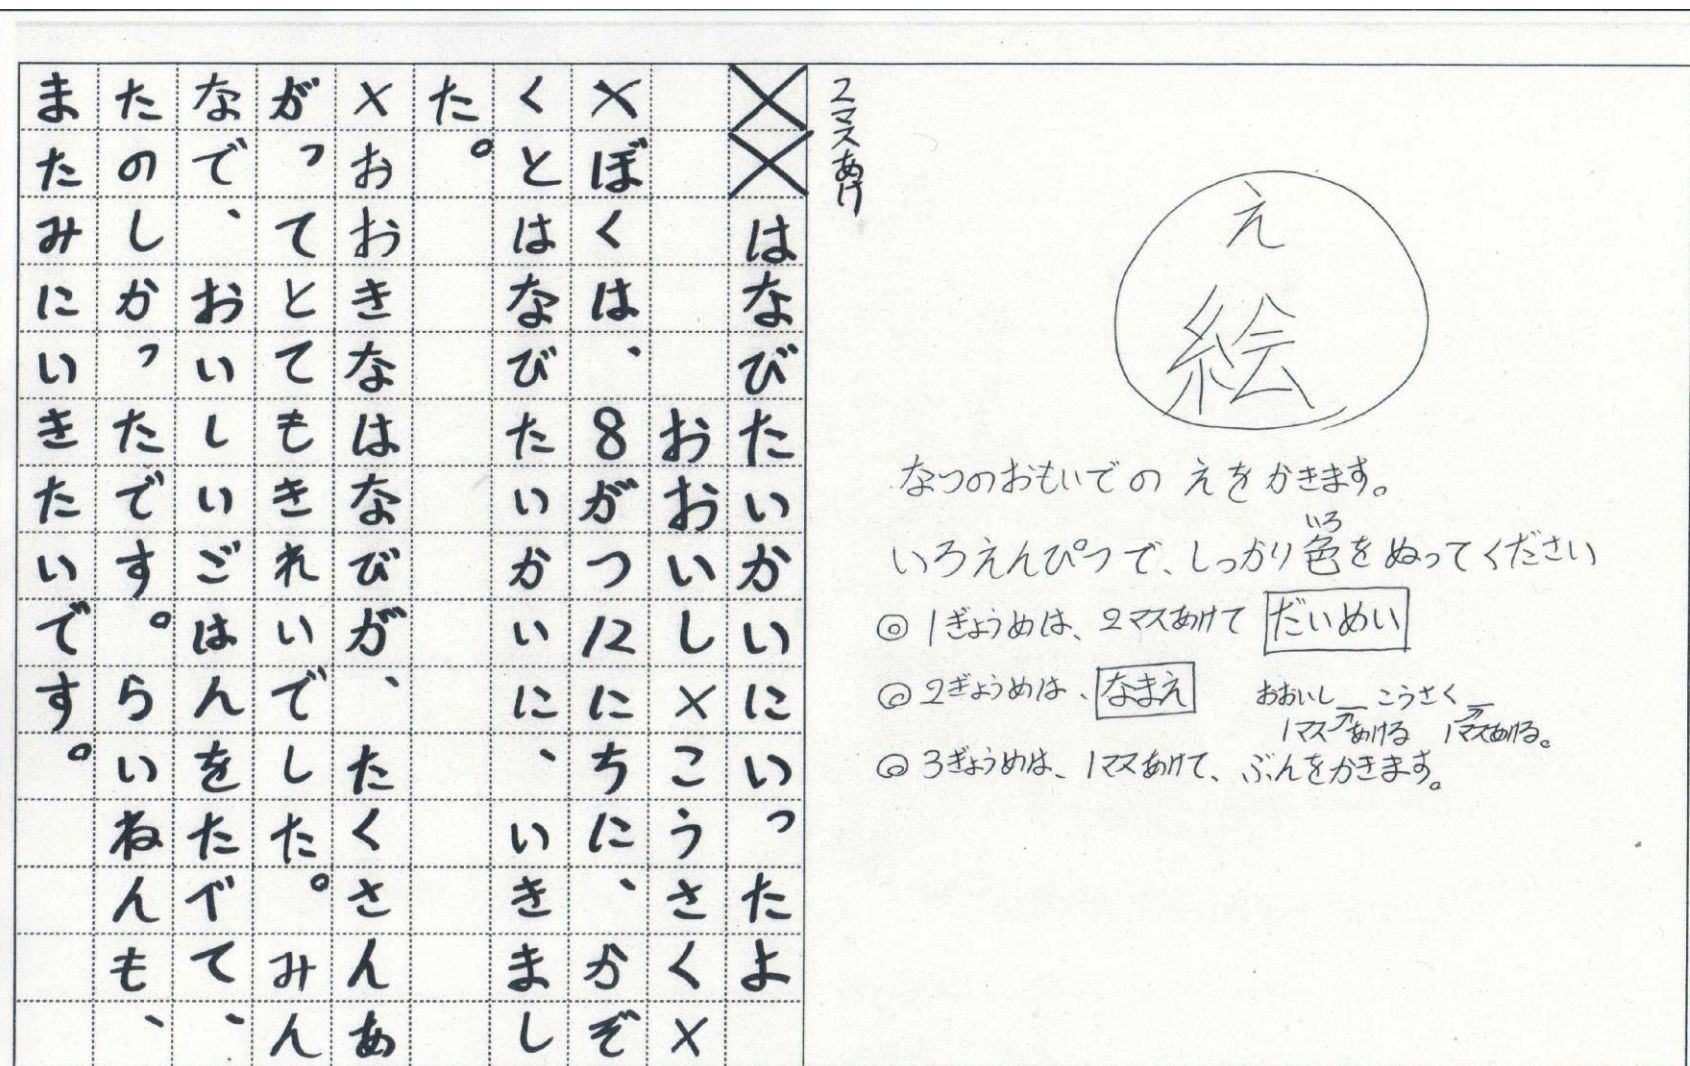 え
絵
なつのおもいでの えを かきます。
いろ
いろえんぴつで、しっかり色をぬってください
◎ 1ぎょうめは、2マスあけて だいめい
◎ 2ぎょうめは、なまえ おおいし_こうさく_
1マスあける 1マスあける。
◎ 3ぎょうめは、1マスあけて、ぶんをかきます。
2マスあけ
××はなびたいかいにいったよ
おおいし×こうさく×
×ぼくは、8がつ12にちに、かぞ
くとはなびたいかいに、いきまし
た。
×おおきなはなびが、たくさんあ
がってとてもきれいでした。みん
なで、おいしいごはんをたべて、
たのしかったです。らいねんも、
またみにいきたいです。